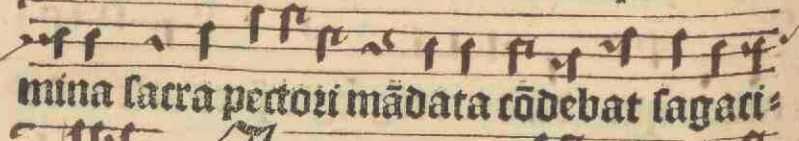 mina sacra pectori mādata cōdebat sagaci⸗